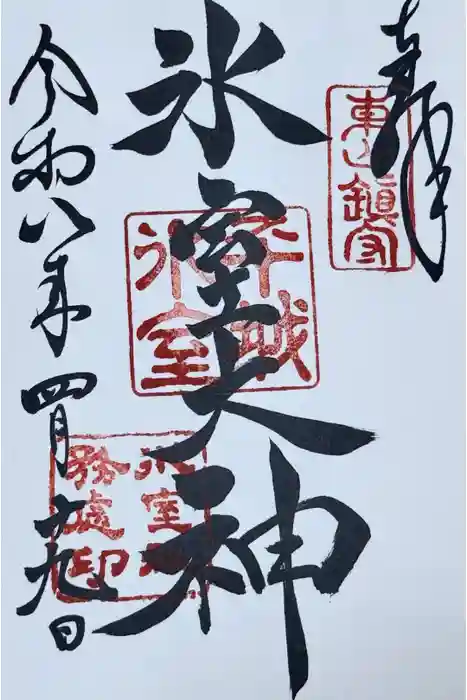 奉拝
東山鎮守
氷室大神
平城
氷室
令和八年四月十九日
氷室神
務處印